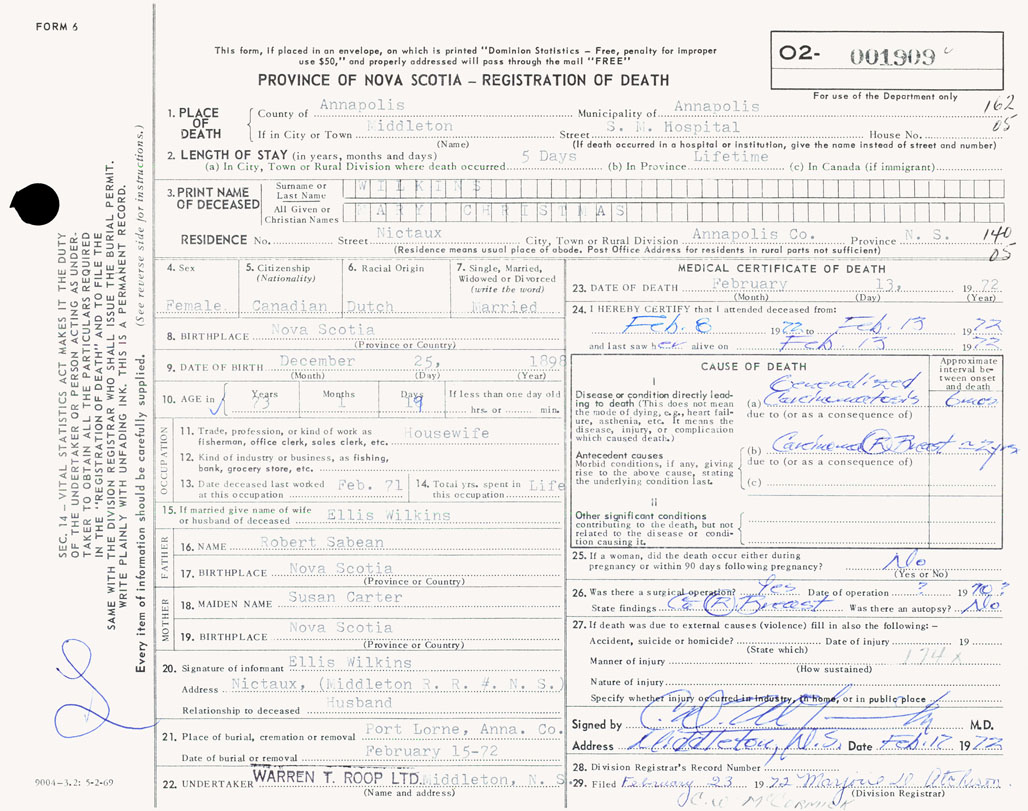 FORM 6
This form, if placed in an envelope, on which is printed "Dominion Statistics – Free, penalty for improper
use $50," and properly addressed will pass through the mail "FREE"
PROVINCE OF NOVA SCOTIA – REGISTRATION OF DEATH
02- 001909
For use of the Department only
162
05
1. PLACE OF DEATH
County of Annapolis Municipality of Annapolis
If in City or Town Middleton Street S. M. Hospital House No.
(Name) (If death occurred in a hospital or institution, give the name instead of street and number)
2. LENGTH OF STAY (in years, months and days) 5 Days Lifetime
(a) In City, Town or Rural Division where death occurred (b) In Province (c) In Canada (if immigrant)
3. PRINT NAME OF DECEASED
Surname or Last Name WILKINS
All Given or Christian Names MARY CHRISTMAS
RESIDENCE No. Street Nictaux City, Town or Rural Division Annapolis Co. Province N. S. 140
(Residence means usual place of abode. Post Office Address for residents in rural parts not sufficient) 05
4. Sex Female
5. Citizenship (Nationality) Canadian
6. Racial Origin Dutch
7. Single, Married, Widowed or Divorced (write the word) Married
8. BIRTHPLACE Nova Scotia
(Province or Country)
9. DATE OF BIRTH December 25, 1898
(Month) (Day) (Year)
10. AGE in Years 73 Months 1 Days 19 If less than one day old
hrs. or min.
OCCUPATION
11. Trade, profession, or kind of work as Housewife
fisherman, office clerk, sales clerk, etc.
12. Kind of industry or business, as fishing,
bank, grocery store, etc.
13. Date deceased last worked at this occupation Feb. 71
14. Total yrs. spent in this occupation Life
15. If married give name of wife or husband of deceased Ellis Wilkins
FATHER
16. NAME Robert Sabean
17. BIRTHPLACE Nova Scotia
(Province or Country)
MOTHER
18. MAIDEN NAME Susan Carter
19. BIRTHPLACE Nova Scotia
(Province or Country)
20. Signature of informant Ellis Wilkins
Address Nictaux, (Middleton R. R. #. N. S.)
Relationship to deceased Husband
21. Place of burial, cremation or removal Port Lorne, Anna. Co.
Date of burial or removal February 15-72
22. UNDERTAKER WARREN T. ROOP LTD. Middleton, N. S.
(Name and address)
MEDICAL CERTIFICATE OF DEATH
23. DATE OF DEATH February 13, 1972
(Month) (Day) (Year)
24. I HEREBY CERTIFY that I attended deceased from:
Feb. 8 1972 to Feb. 13 1972
and last saw her alive on Feb 13 1972
CAUSE OF DEATH
Approximate interval between onset and death
I
Disease or condition directly leading to death (This does not mean the mode of dying, e.g., heart failure, asthenia, etc. It means the disease, injury, or complication which caused death.)
Generalized
(a) Carcinomatosis 6 mos
due to (or as a consequence of)
Antecedent causes
Morbid conditions, if any, giving rise to the above cause, stating the underlying condition last.
(b) Carcinoma R Breast ~2 yrs
due to (or as a consequence of)
(c)
II
Other significant conditions contributing to the death, but not related to the disease or condition causing it.
25. If a woman, did the death occur either during
pregnancy or within 90 days following pregnancy? No
(Yes or No)
26. Was there a surgical operation? Yes Date of operation ? 1970?
State findings Ca R Breast Was there an autopsy? No
27. If death was due to external causes (violence) fill in also the following: –
Accident, suicide or homicide? Date of injury 19
(State which)
Manner of injury 174x
(How sustained)
Nature of injury
Specify whether injury occurred in industry, in home, or in public place
Signed by M.D.
Address Middleton, N.S. Date Feb. 17 1972
28. Division Registrar's Record Number
29. Filed February 23 1972 Marjorie D
(Division Registrar)
SEC. 14 – VITAL STATISTICS ACT MAKES IT THE DUTY
OF THE UNDERTAKER OR PERSON ACTING AS UNDER-
TAKER TO OBTAIN ALL THE PARTICULARS REQUIRED
IN THE "REGISTRATION OF DEATH" AND TO FILE THE
SAME WITH THE DIVISION REGISTRAR WHO SHALL ISSUE THE BURIAL PERMIT.
WRITE PLAINLY WITH UNFADING INK. THIS IS A PERMANENT RECORD.
Every item of information should be carefully supplied. (See reverse side for instructions.)
9004-3.2: 5-2-69